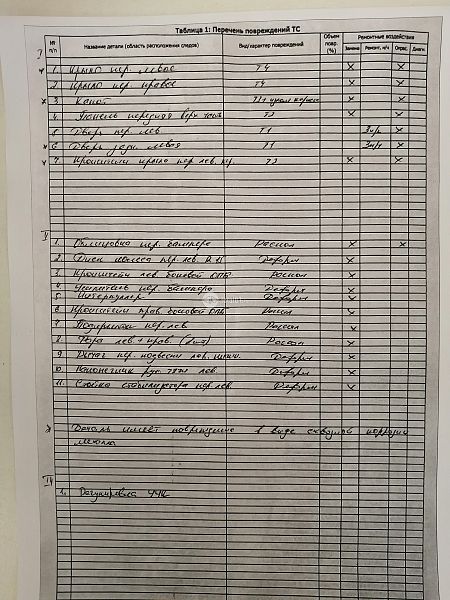 Таблица 1: Перечень повреждений ТС
№ п/п Название детали (область расположения следов) Вид/характер повреждений Объем повр. (%) Ремонтные воздействия
Замена Ремонт, н/ч Окрас. Диагн.
I
1. Крыло пер. левое Т4 × ×
2 Крыло пер. правое Т4 × ×
× 3 Капот × ×
4. передняя верх × ×
5 Дверь пер. лев. Т1 3н/ч ×
× 6 Дверь задн. левая Т1 3н/ч ×
7 Кронштейн крыла пер. лев. пер. Т3 × ×
II
1. Облицовка пер. бампера Раскол × ×
2. Диск колеса пер. лев. R 15 Деформ ×
3. Кронштейн лев. боковой Раскол ×
4 Усилитель пер. бампера Деформ ×
5 Интеркулер Деформ ×
6 Кронштейн прав. боковой Раскол ×
7 Подкрылок пер. лев Раскол ×
8 Фара лев + прав. (2шт) Раскол ×
9 Рычаг пер. подвески лев. нижн. Деформ ×
10. Наконечник рул. тяги лев. Деформ ×
11. Стойка стабилизатора пер. лев. Деформ ×
× Деталь имеет повреждение в виде сквозной коррозии
металла
1. Регулировка УУК